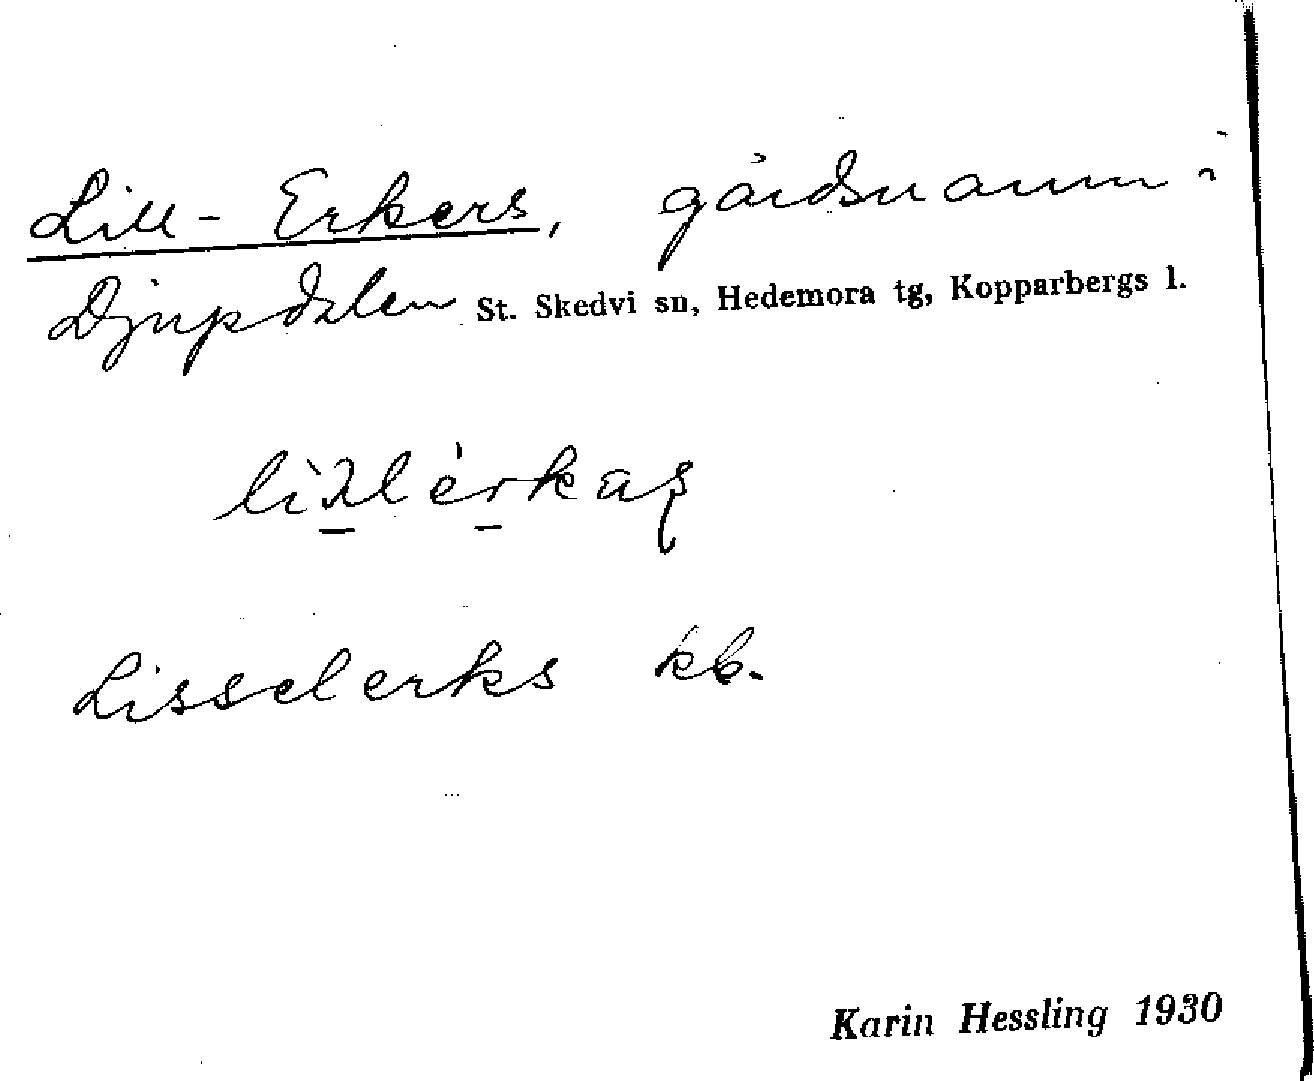 Lill-Erkers, gårdsnamn i
Djupdalen St. Skedvi sn, Hedemora tg, Kopparbergs l.
Lisselerks kb.
Karin Hessling 1930